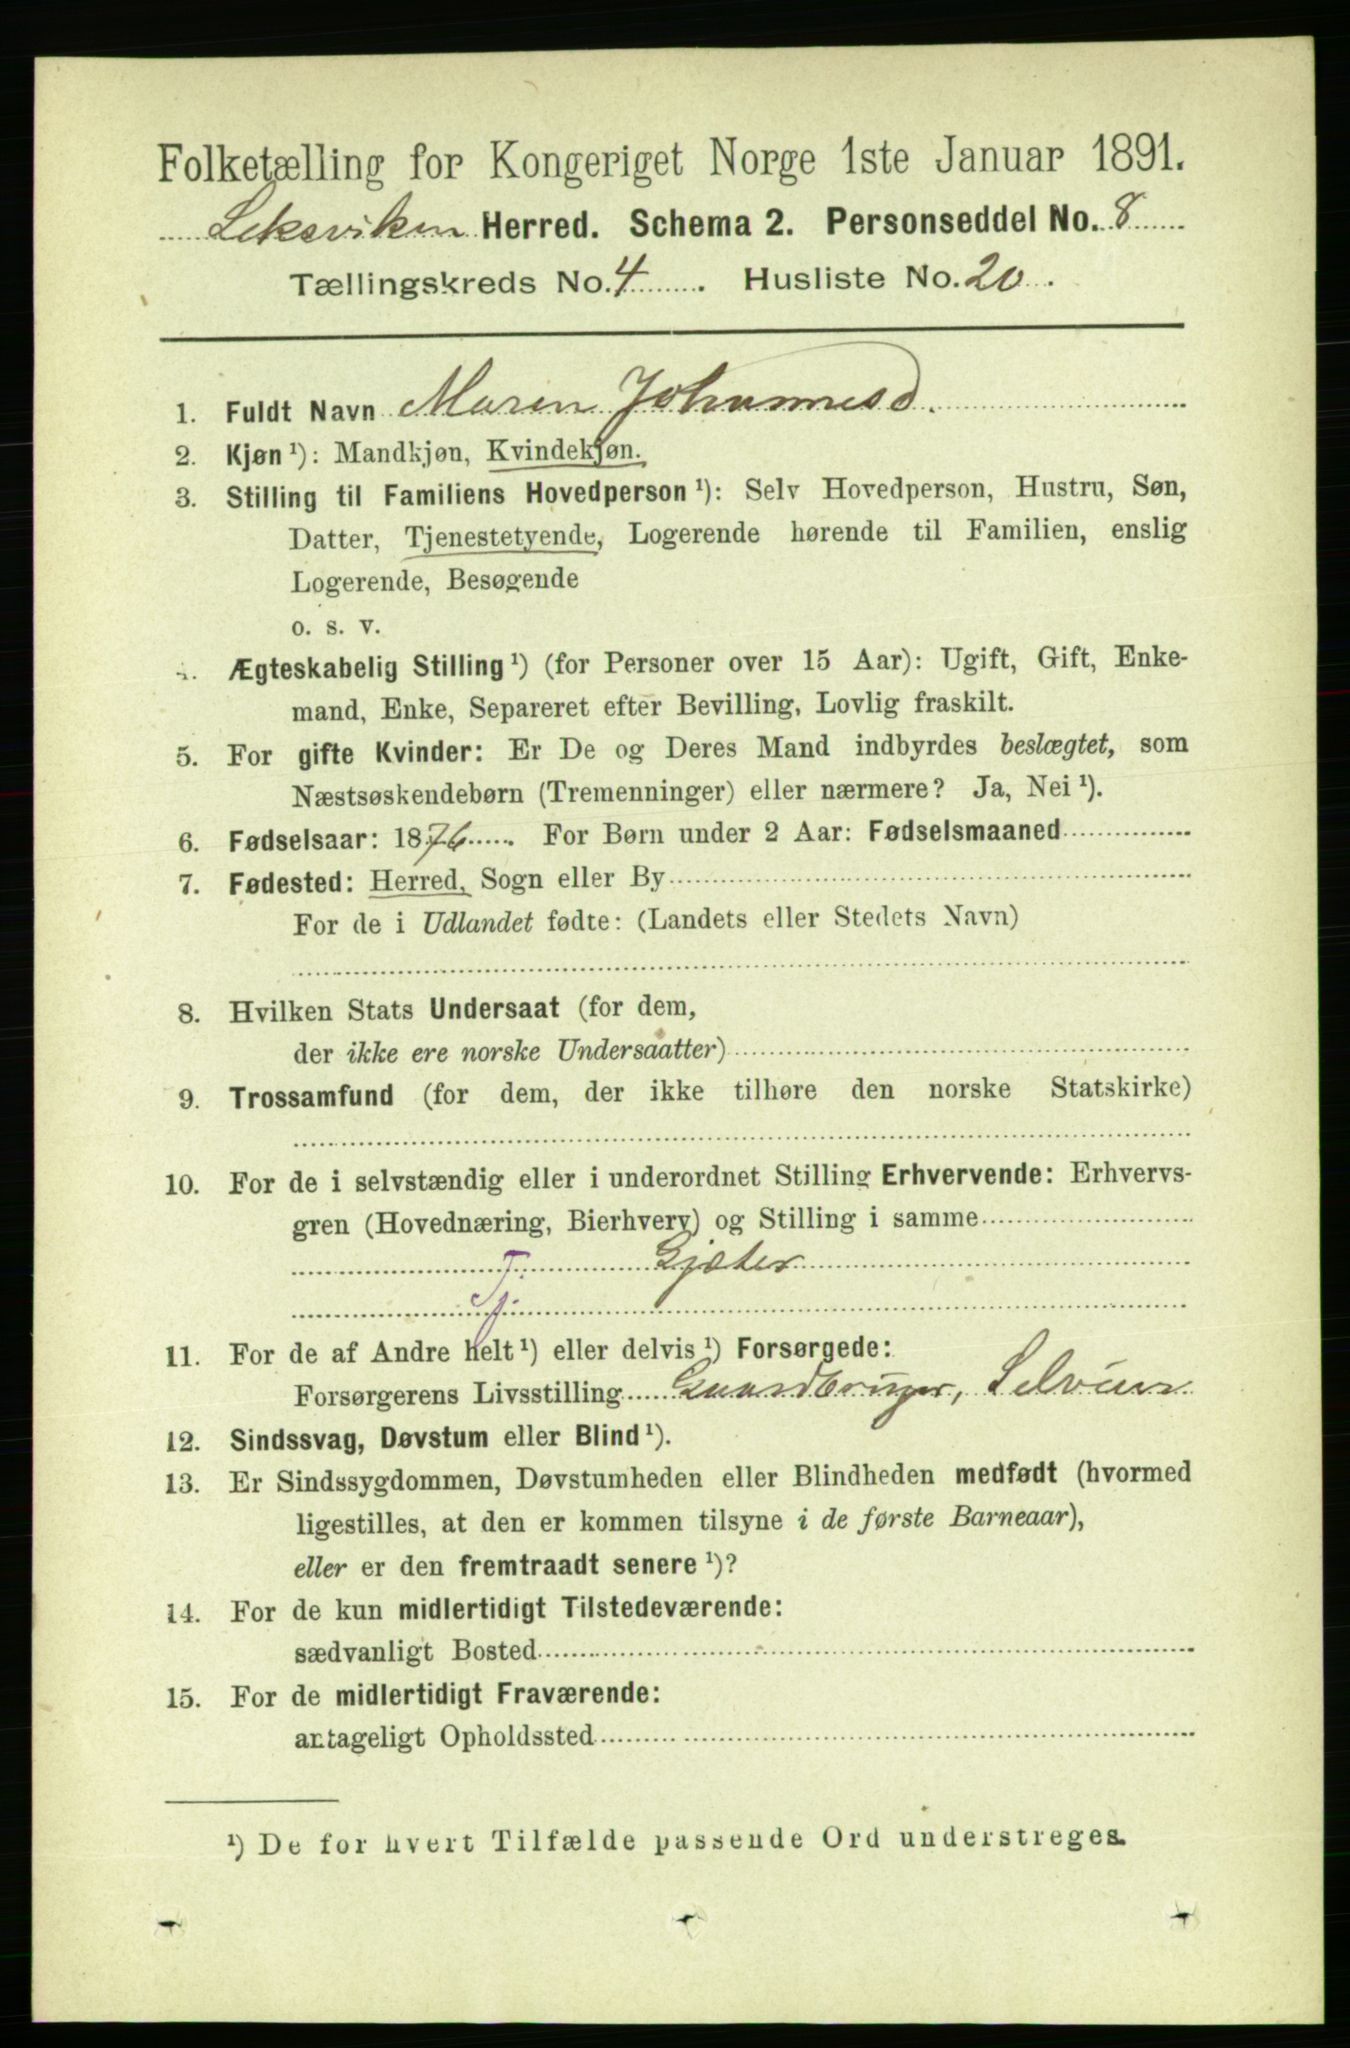 Folketælling for Kongeriget Norge 1ste Januar 1891.
Leksviken Herred. Schema 2. Personseddel No. 8
Tællingskreds No. 4. Husliste No. 20.
1. Fuldt Navn Maren Johannesd.
2. Kjøn ¹): Mandkjøn, Kvindekjøn.
3. Stilling til Familiens Hovedperson ¹): Selv Hovedperson, Hustru, Søn,
Datter, Tjenestetyende, Logerende hørende til Familien, enslig
Logerende, Besøgende
o. s. v.
4. Ægteskabelig Stilling ¹) (for Personer over 15 Aar): Ugift, Gift, Enke-
mand, Enke, Separeret efter Bevilling, Lovlig fraskilt.
5. For gifte Kvinder: Er De og Deres Mand indbyrdes beslægtet, som
Næstsøskendebørn (Tremenninger) eller nærmere? Ja, Nei ¹).
6. Fødselsaar: 1876. For Børn under 2 Aar: Fødselsmaaned
7. Fødested: Herred, Sogn eller By
For de i Udlandet fødte: (Landets eller Stedets Navn)
8. Hvilken Stats Undersaat (for dem,
der ikke ere norske Undersaatter)
9. Trossamfund (for dem, der ikke tilhøre den norske Statskirke)
10. For de i selvstændig eller i underordnet Stilling Erhvervende: Erhvervs-
gren (Hovednæring, Bierhverv) og Stilling i samme
Tj. Gjæter
11. For de af Andre helt ¹) eller delvis ¹) Forsørgede:
Forsørgerens Livsstilling Gaardbruger, Selveier
12. Sindssvag, Døvstum eller Blind ¹).
13. Er Sindssygdommen, Døvstumheden eller Blindheden medfødt (hvormed
ligestilles, at den er kommen tilsyne i de første Barneaar),
eller er den fremtraadt senere ¹)?
14. For de kun midlertidigt Tilstedeværende:
sædvanligt Bosted
15. For de midlertidigt Fraværende:
antageligt Opholdssted
¹) De for hvert Tilfælde passende Ord understreges.